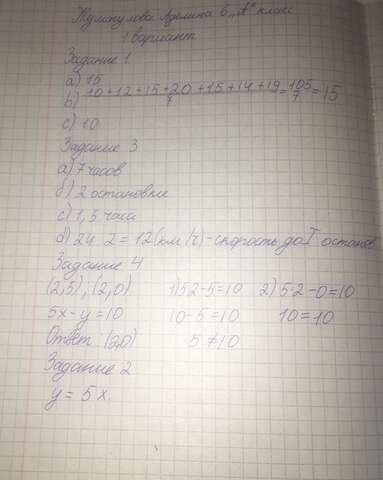 Жумагулова Аделина 6 "А" класс
1 вариант
Задание 1
а) 15
b) 10+12+15+20+15+14+19/7 = 105/7 = 15
c) 10
Задание 3
а) 7 часов
б) 2 остановке
с) 1,5 часа
d) 24:2=12(км/ч)-скорость до I останов
Задание 4
(2,5); (2,0) 1) 5·2-5=10 2) 5·2-0=10
5x-y=10 10-5=10 10=10
Ответ (2,0) 5≠10
Задание 2
y = 5x